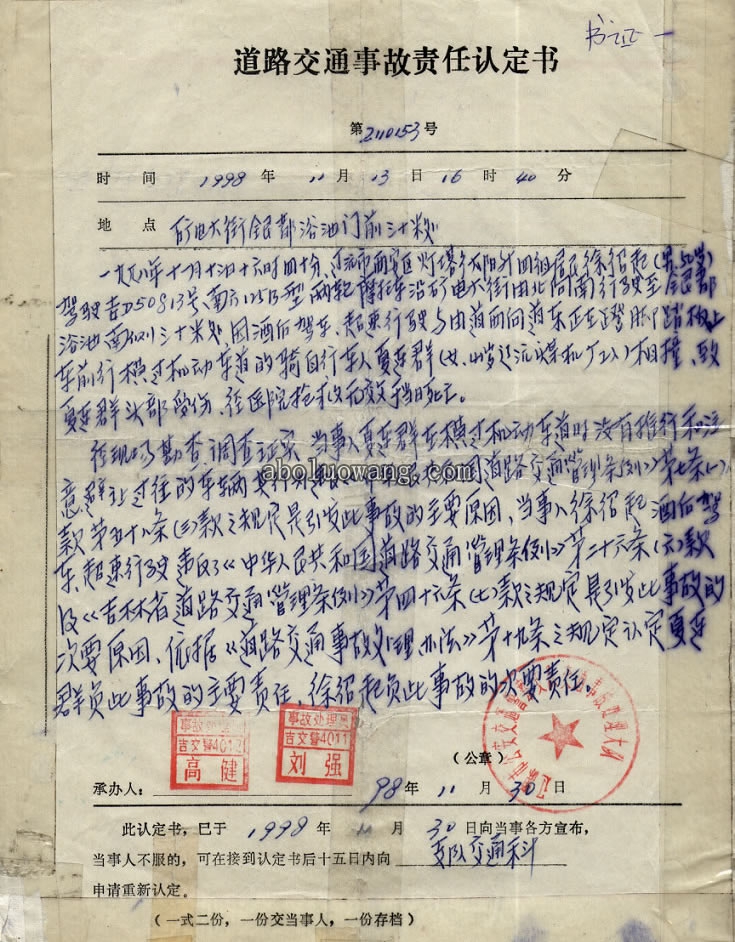 书证一
道路交通事故责任认定书
第2110153号
时 间 1998 年 11 月 13 日 16 时 40 分
地 点 矿电大街银都浴池门前三十米处
一九九八年十一月十三日十六时四十分,辽源市西安区灯塔 太阳 四组居民徐绍起
驾驶吉D50813号南方125B型两轮摩托车沿矿电大街由北向南行驶至银都
浴池南侧三十米处,因酒后驾车、超速行驶与由道西向道东正在
车前行横过机动车道的骑自行车人夏连群(女、 岁辽源煤机厂工人)相撞、致
夏连群头部受伤、经医院抢救无效 死亡。
经现场勘查调查证实,当事人夏连群在横过机动车道时没有推行和注
意避让过往的车辆 国道路交通管理条例》第七条(一)
款第五十八条(三)款之规定是引发此事故的主要原因,当事人徐绍起酒后驾
车、超速行驶违反了《中华人民共和国道路交通管理条例》第二十六条(六)款
及《吉林省道路交通管理条例》第四十六条(七)款之规定是引发此事故的
次要原因、依据《道路交通事故处理办法》第十九条之规定认定夏连
群负此事故的主要责任,徐绍起负此事故的次要责任。
aboluowang.com
事故处理员
吉交警4012
高健
事故处理员
吉交警4011
刘强
(公章)
承办人:
98年 11 月 30 日
此认定书,已于 1998 年 11 月 30 日向当事各方宣布,
当事人不服的,可在接到认定书后十五日内向 支队交通科
申请重新认定。
(一式二份,一份交当事人,一份存档)